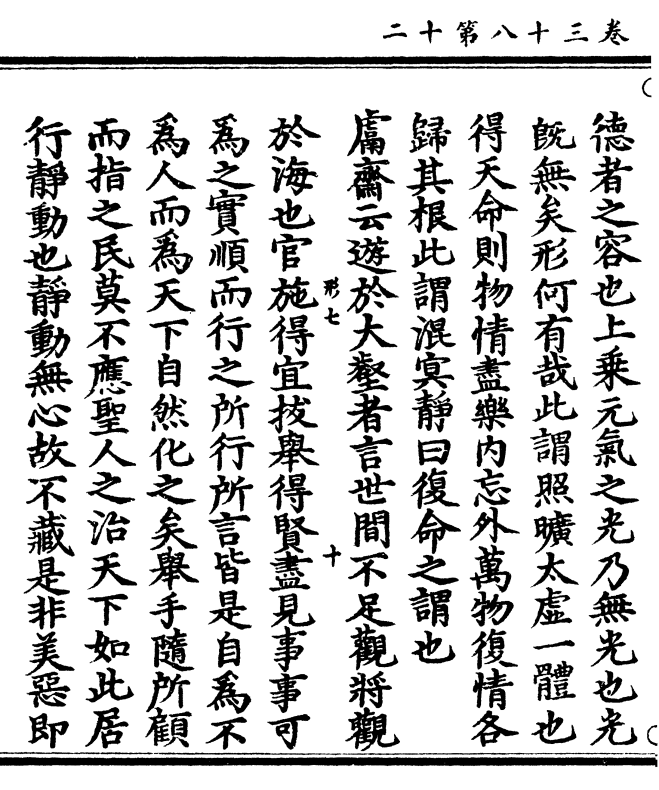 卷三十八第十二
德者之容也上乗元氣之光乃無光也光
旣無矣形何有哉此謂照曠太虛一體也
得天命則物情盡樂内忘外萬物復情各
歸其根此謂混冥靜曰復命之謂也
鬳齋云遊於大壑者言世間不足觀將觀
形七
十
於海也官施得宜拔舉得賢盡見事事可
爲之實順而行之所行所言皆是自爲不
爲人而爲天下自然化之矣舉手隨所顧
而指之民莫不應聖人之治天下如此居
行靜動也靜動無心故不藏是非美惡即